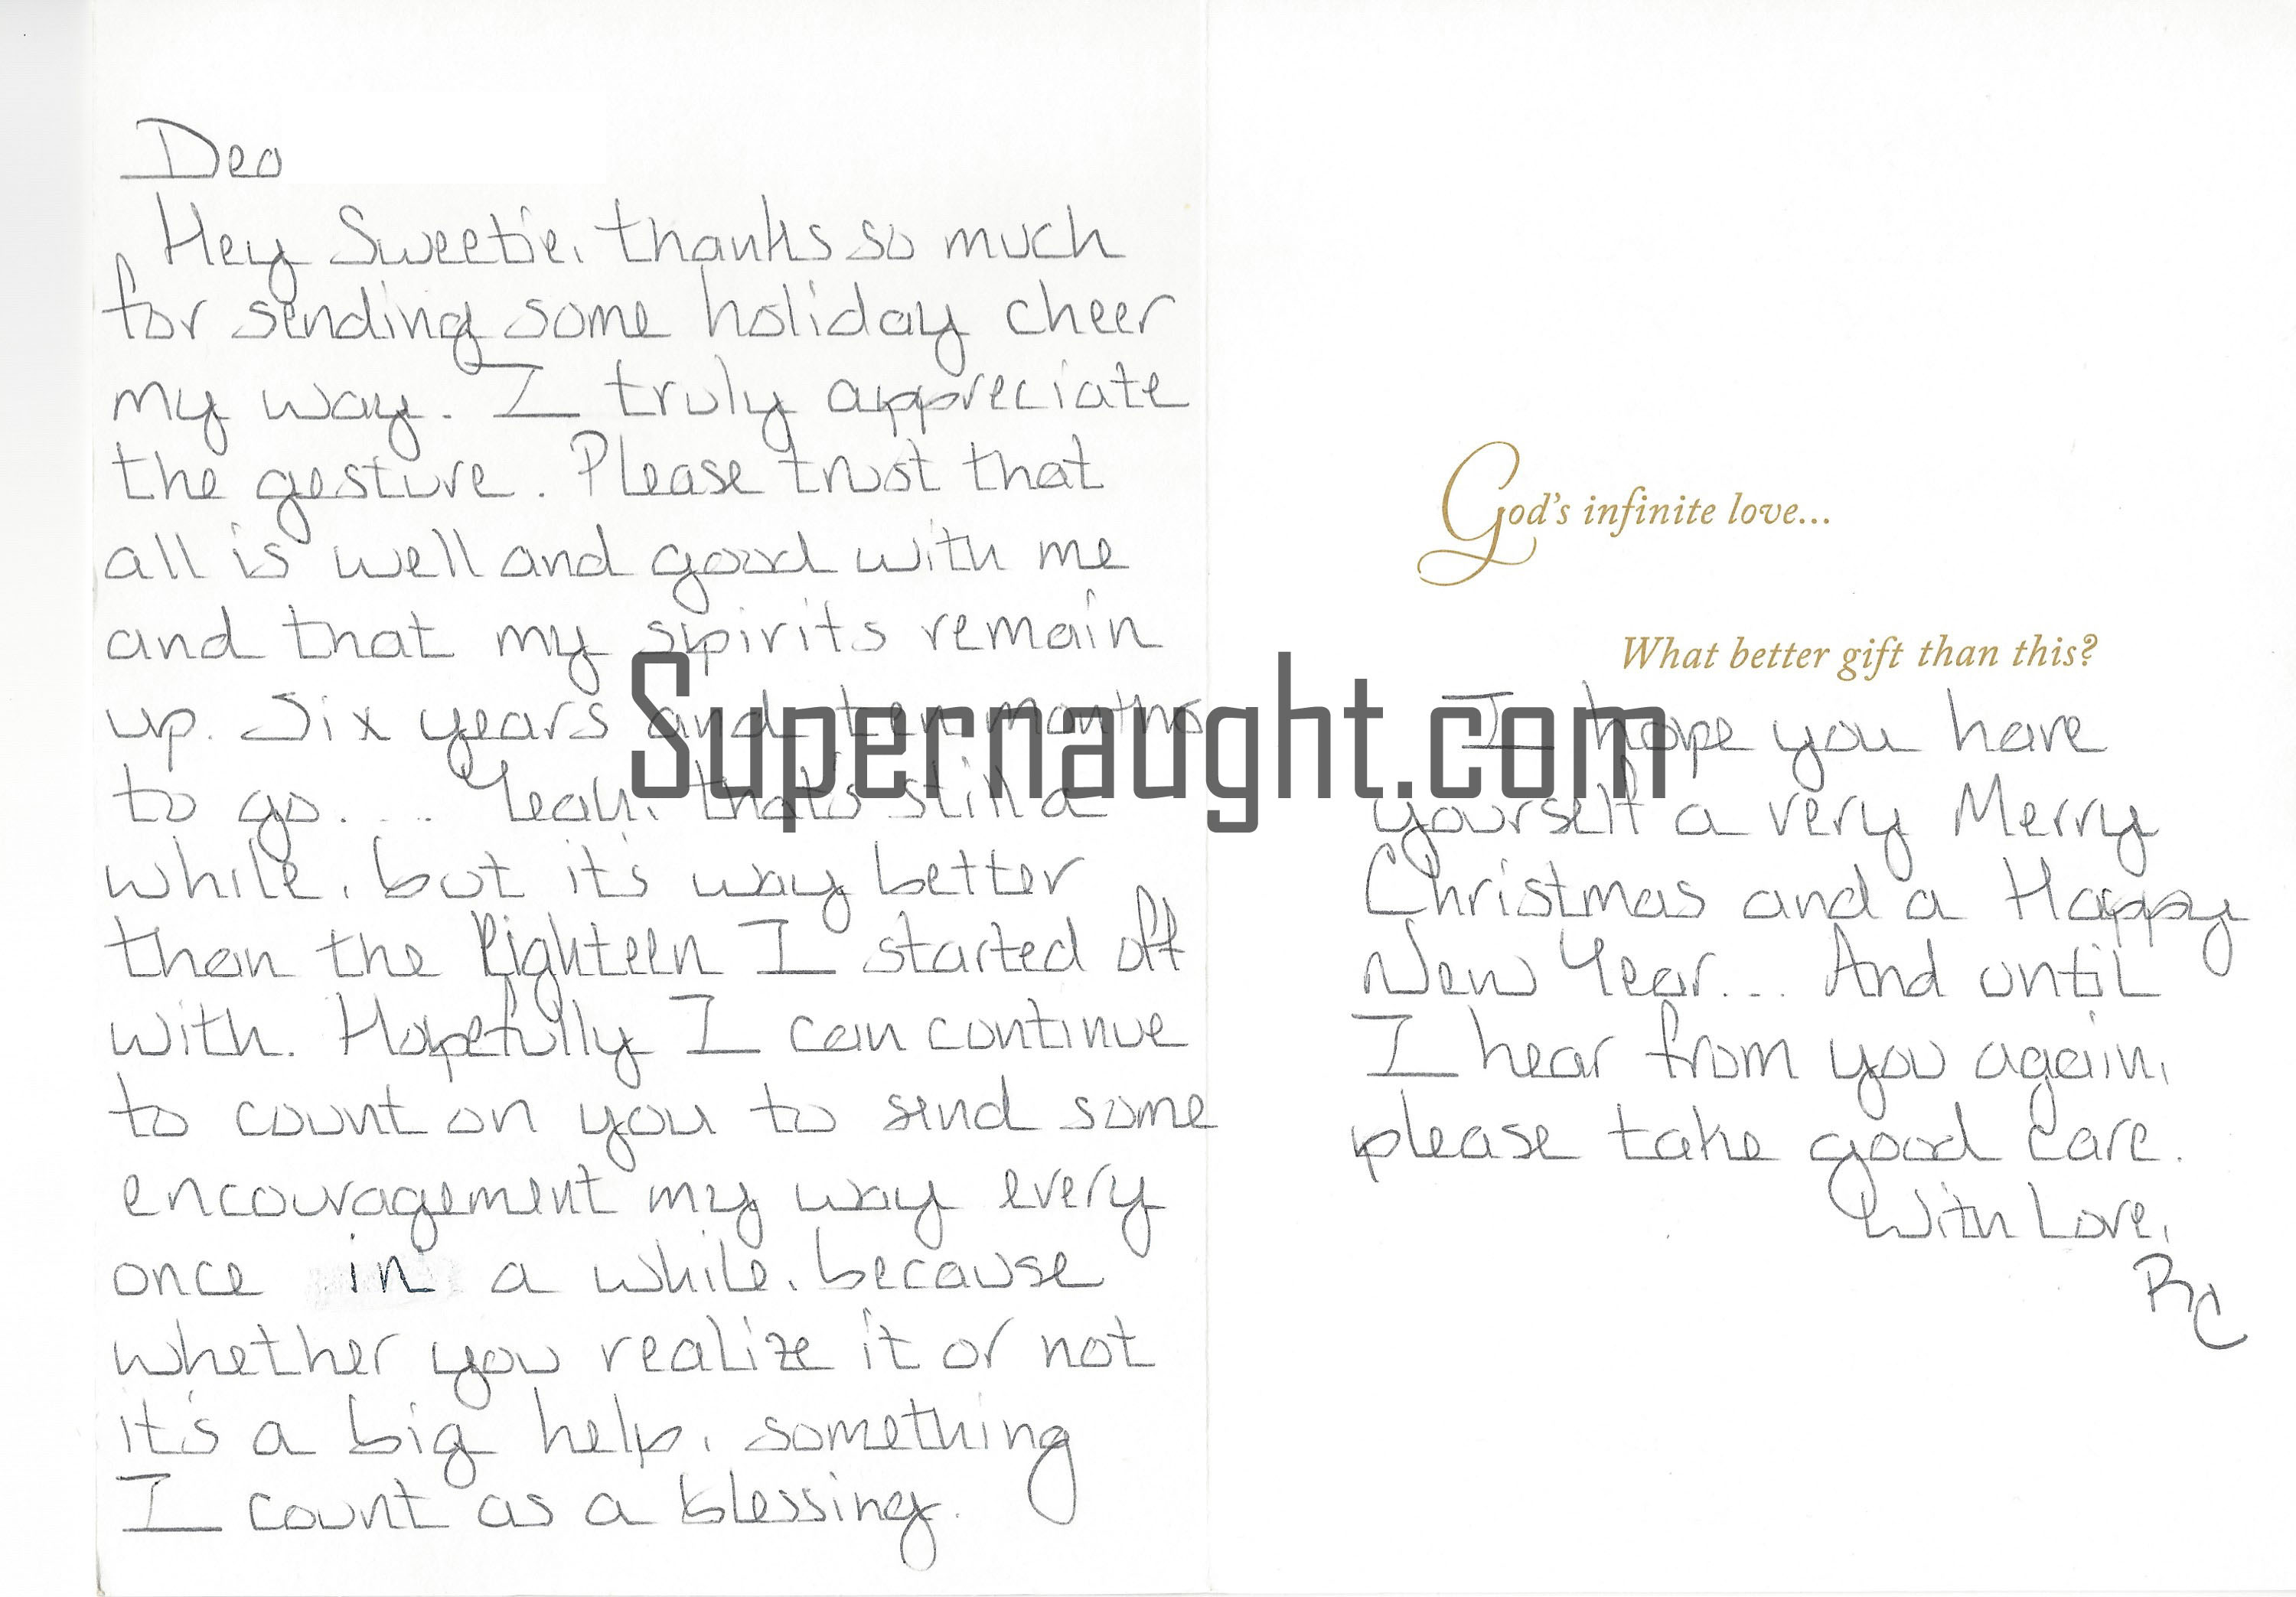 Dea
Hey Sweetie, thanks so much
for sending some holiday cheer
my way. I truly appreciate
the gesture. Please trust that
all is well and good with me
and that my spirits remain
up. Six years and ten months
to go.... Yeah, thats still a
while, but it's way better
than the Eighteen I started off
with. Hopefully I can continue
to count on you to send some
encouragement my way every
once in a while, because
whether you realize it or not
it's a big help, something
I count as a blessing.
God's infinite love...
What better gift than this?
I hope you have
yourself a very Merry
Christmas and a Happy
New Year... And until
I hear from you again,
please take good care.
With Love,
RC
Supernaught.com